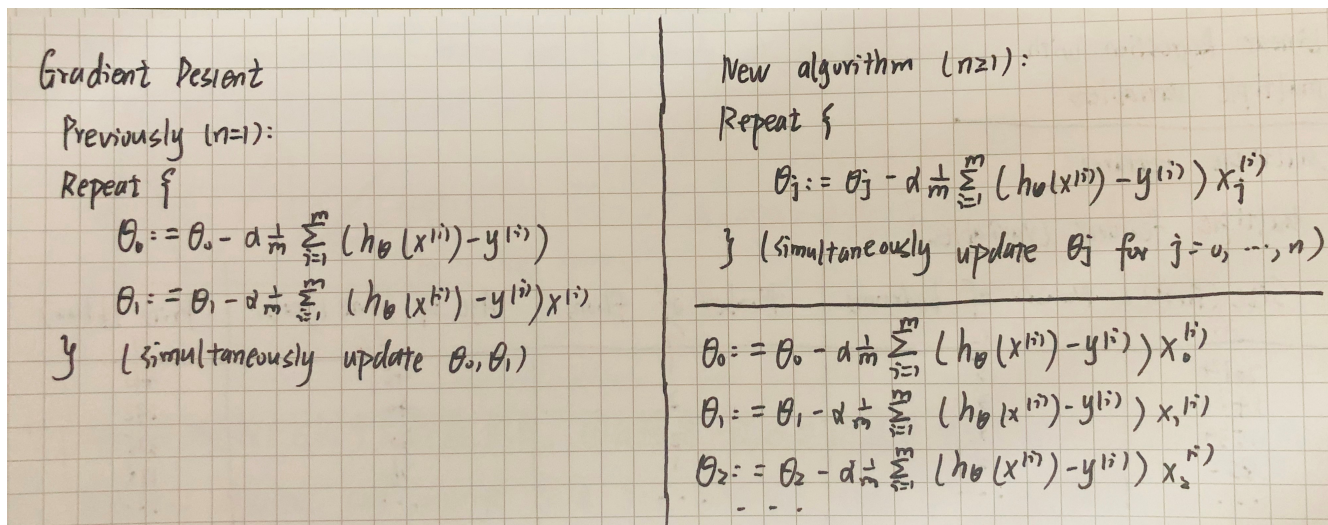 Gradient Desient
Previously (n=1):
Repeat {
θ₀ := θ₀ - α 1/m ∑_{i=1}^{m} (hθ(x⁽ⁱ⁾) - y⁽ⁱ⁾)
θ₁ := θ₁ - α 1/m ∑_{i=1}^{m} (hθ(x⁽ⁱ⁾) - y⁽ⁱ⁾) x⁽ⁱ⁾
} (simultaneously update θ₀, θ₁)
New algorithm (n≥1):
Repeat {
θⱼ := θⱼ - α 1/m ∑_{i=1}^{m} (hθ(x⁽ⁱ⁾) - y⁽ⁱ⁾) xⱼ⁽ⁱ⁾
} (simultaneously update θⱼ for j = 0, ..., n)
θ₀ := θ₀ - α 1/m ∑_{i=1}^{m} (hθ(x⁽ⁱ⁾) - y⁽ⁱ⁾) x₀⁽ⁱ⁾
θ₁ := θ₁ - α 1/m ∑_{i=1}^{m} (hθ(x⁽ⁱ⁾) - y⁽ⁱ⁾) x₁⁽ⁱ⁾
θ₂ := θ₂ - α 1/m ∑_{i=1}^{m} (hθ(x⁽ⁱ⁾) - y⁽ⁱ⁾) x₂⁽ⁱ⁾
...